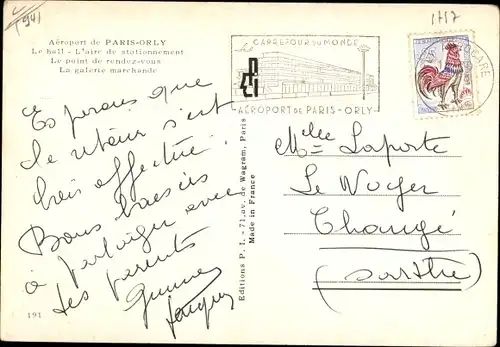 1941
1717
Aéroport de PARIS-ORLY
Le hall - L'aire de stationnement
Le point de rendez-vous
La galerie marchande
CARREFOUR DU MONDE
AÉROPORT DE PARIS-ORLY
Espérons que
le retour s'est
bien effectué.
Bons baisers
à partager avec
tes parents
Mlle Laporte
Le Noyer
Changé
(Sarthe)
Editions P. I. - 71, av. de Wagram, Paris
Made in France
191